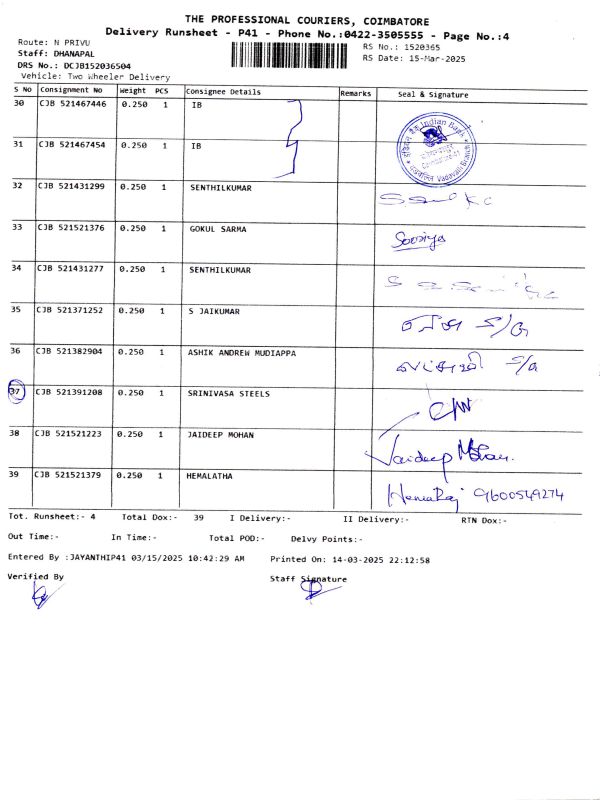 THE PROFESSIONAL COURIERS, COIMBATORE
Delivery Runsheet - P41 - Phone No.:0422-3505555 - Page No.:4
Route: N PRIVU
RS No.: 1520365
Staff: DHANAPAL
RS Date: 15-Mar-2025
DRS No.: DCJB152036504
Vehicle: Two Wheeler Delivery
S No Consignment No Weight PCS Consignee Details Remarks Seal & Signature
30 CJB 521467446 0.250 1 IB
Indian Bank
Vadavalli Branch
31 CJB 521467454 0.250 1 IB
32 CJB 521431299 0.250 1 SENTHILKUMAR
33 CJB 521521376 0.250 1 GOKUL SARMA
34 CJB 521431277 0.250 1 SENTHILKUMAR
35 CJB 521371252 0.250 1 S JAIKUMAR
36 CJB 521382904 0.250 1 ASHIK ANDREW MUDIAPPA
37 CJB 521391208 0.250 1 SRINIVASA STEELS
38 CJB 521521223 0.250 1 JAIDEEP MOHAN Jaideep Mohan.
39 CJB 521521379 0.250 1 HEMALATHA HemaRaj 9600549274
Tot. Runsheet:- 4 Total Dox:- 39 I Delivery:- II Delivery:- RTN Dox:-
Out Time:- In Time:- Total POD:- Delvy Points:-
Entered By :JAYANTHIP41 03/15/2025 10:42:29 AM Printed On: 14-03-2025 22:12:58
Verified By Staff Signature